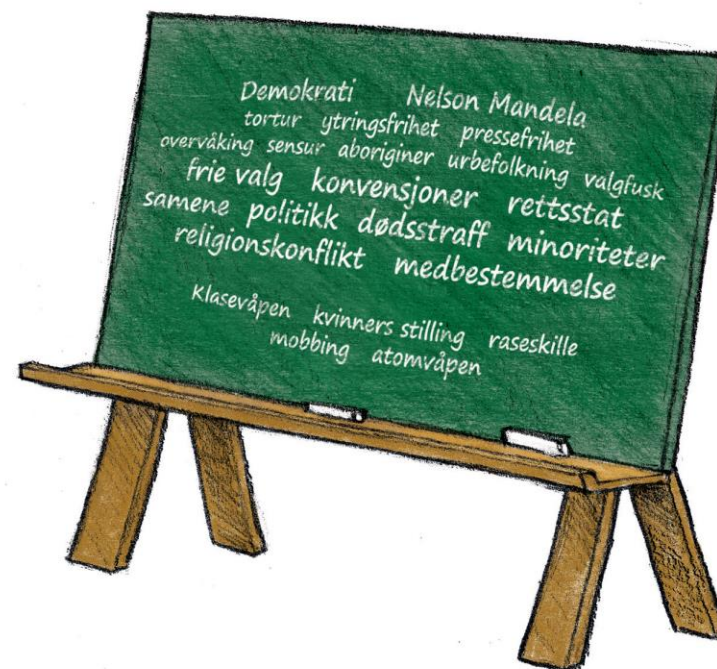 Demokrati Nelson Mandela
tortur ytringsfrihet pressefrihet
overvåking sensur aboriginer urbefolkning valgfusk
frie valg konvensjoner rettsstat
samene politikk dødsstraff minoriteter
religionskonflikt medbestemmelse
Klasevåpen kvinners stilling raseskille
mobbing atomvåpen